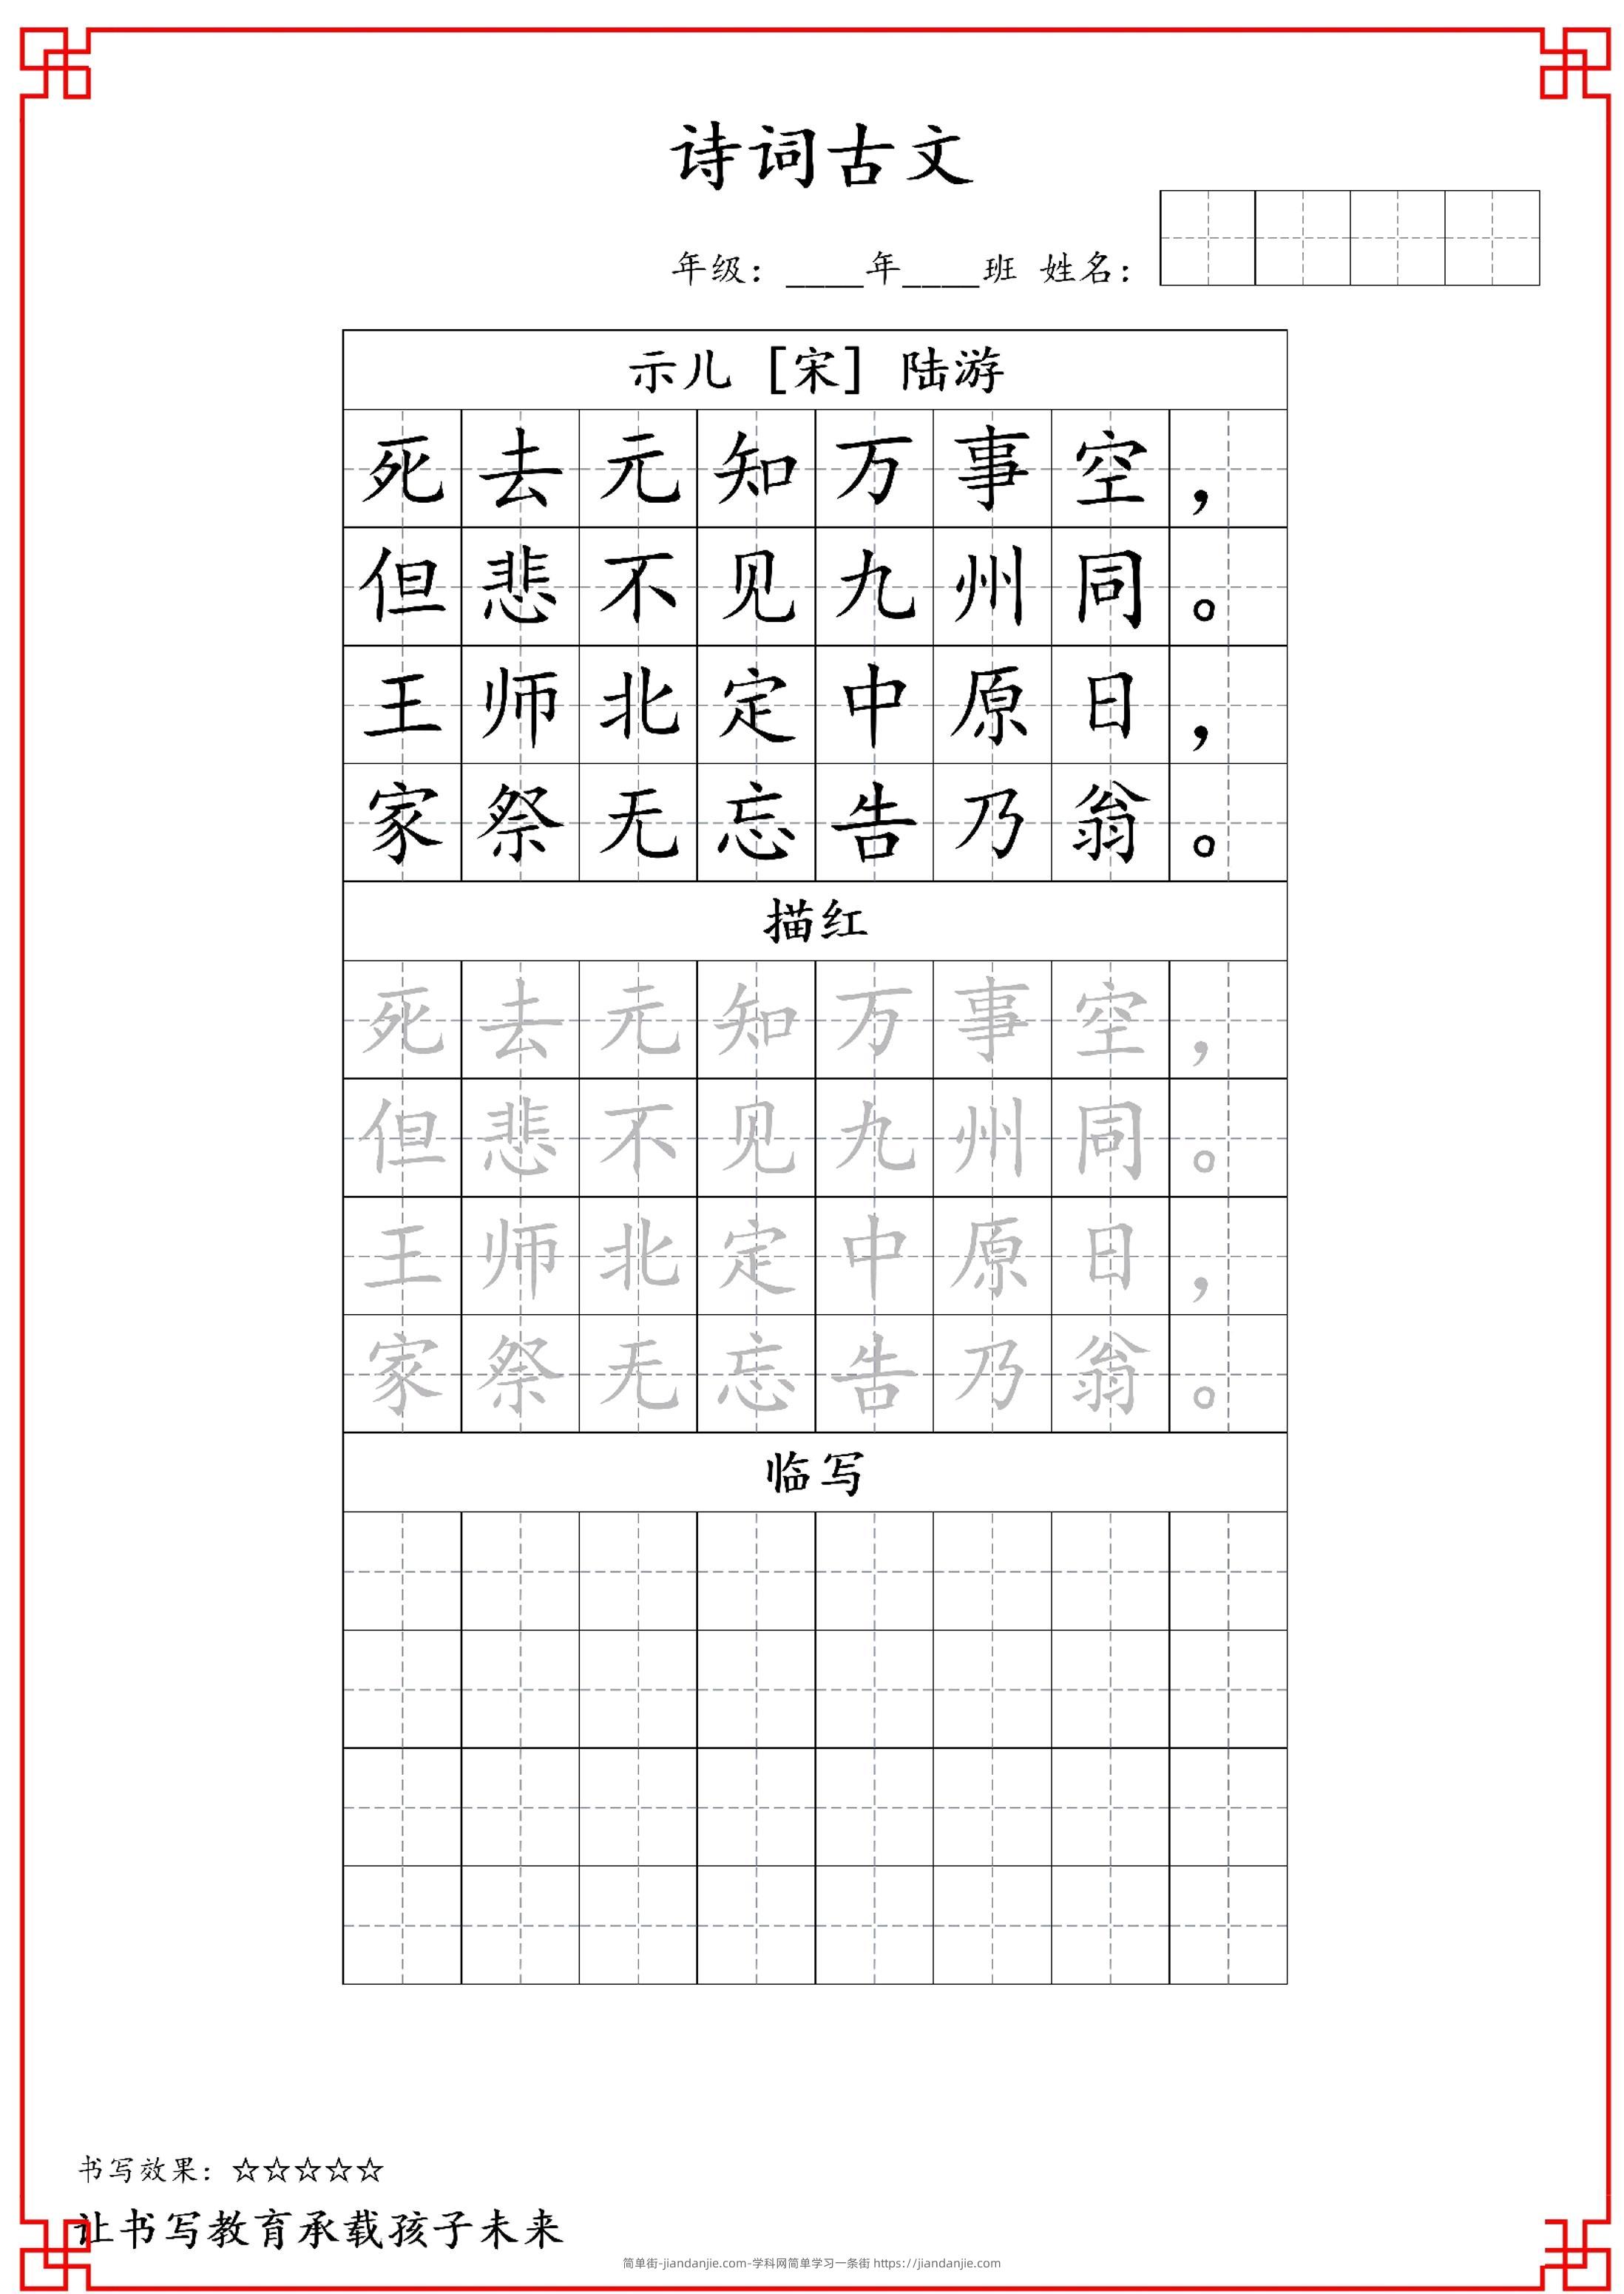 诗词古文
年级：____年____班 姓名：
示儿 [宋] 陆游
死去元知万事空，
但悲不见九州同。
王师北定中原日，
家祭无忘告乃翁。
描红
死去元知万事空，
但悲不见九州同。
王师北定中原日，
家祭无忘告乃翁。
临写
书写效果：☆☆☆☆☆
让书写教育承载孩子未来
简单街-jiandanjie.com-学科网简单学习一条街 https://jiandanjie.com